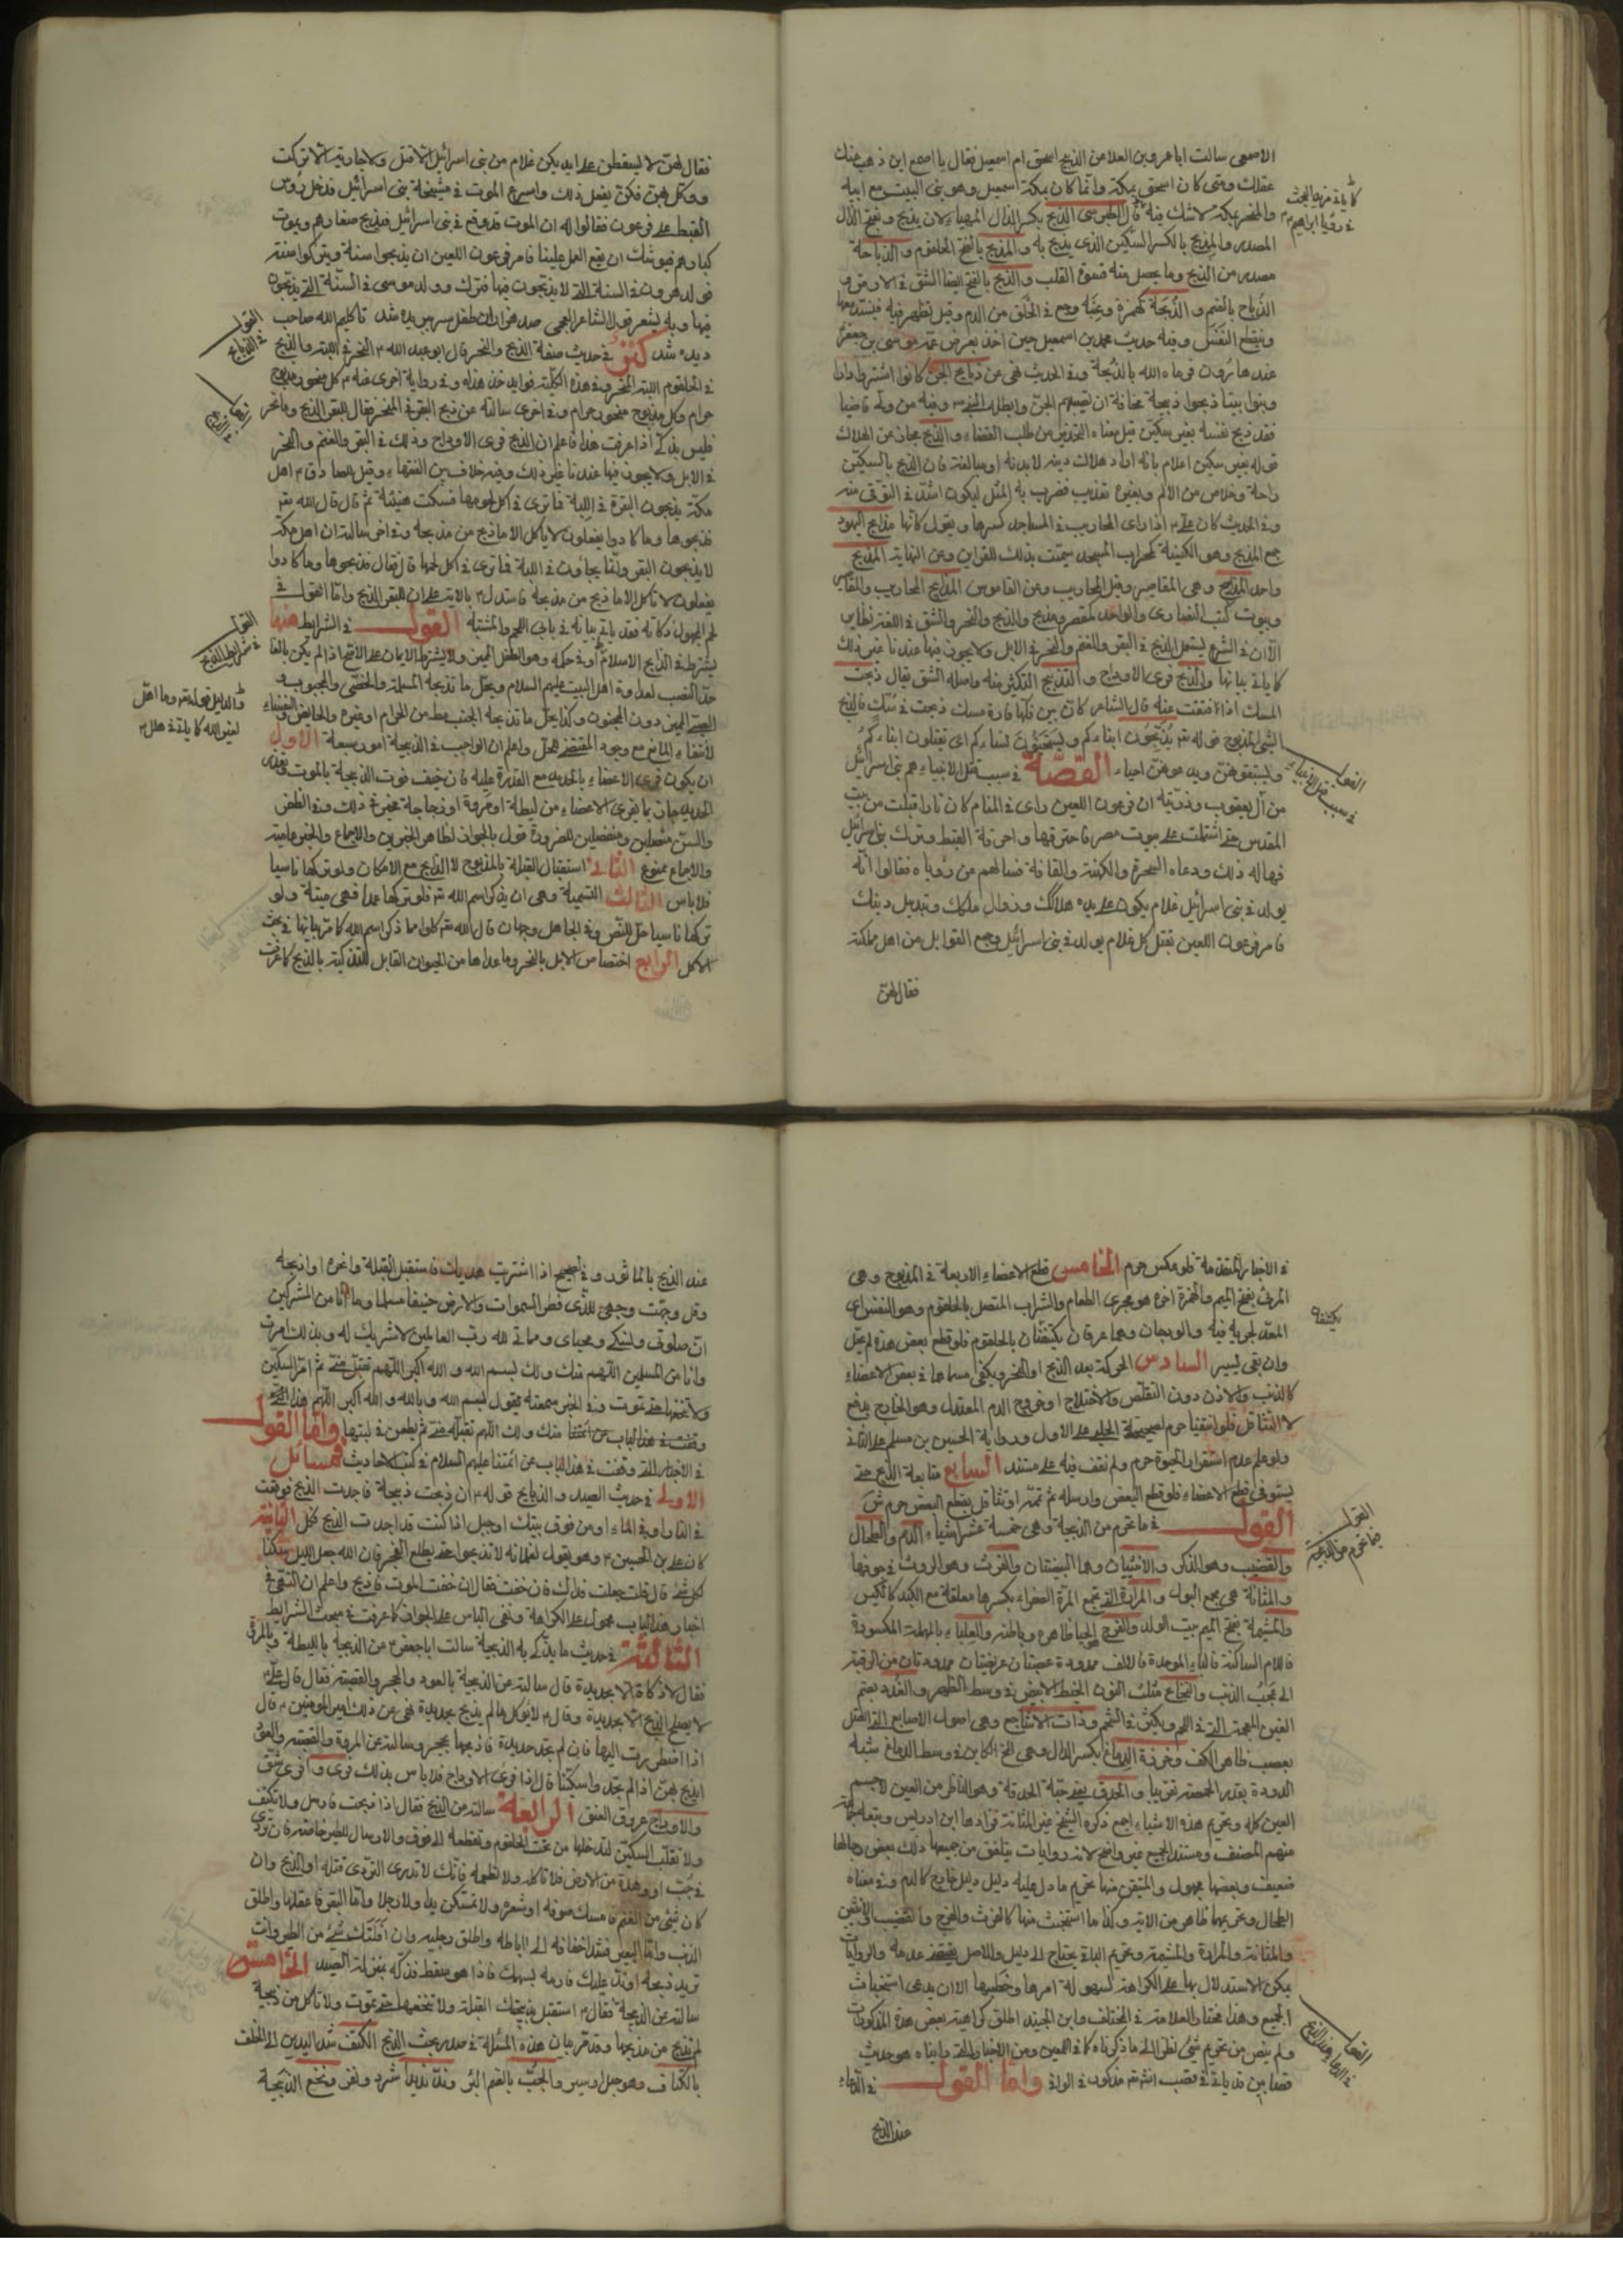 الاصمعي سالت ابا عمرو بن العلا عن الذبيح اسحق ام اسمعيل فقال يا اصمع اين ذهب عنك
عقلك ومتى كان اسحق بمكة وانما كان بمكة اسمعيل وهو بنى البيت مع ابيه
والمنحر بمكة لا شك فيه قال الطبرسي الذبح بكسر الذال المهياء لان يذبح وبفتح الذال
المصدر والمذبح بالكسر السكين الذي يذبح به والمذبح بالفتح الحلقوم والذباحة
مصدر من الذبح وما يحصل منه قسوة القلب والذبح بالفتح ايضا الشق في الارض و
الذباح بالضم و الذبحة كهمزة وعنبة وجع في الحلق من الدم وقيل تظهر فيه فينسد معها
وينقطع النفس وفيه حديث محمد بن اسمعيل حين اخذ بعرض عمه موسى بن جعفر
عند هارون فرماه الله بالذبحة وفي الحديث نهى عن ذبايح الجن كانوا اشتروا دارا
وبنوا بيتا ذبحوا ذبيحة مخافة ان تصيبهم الجن وابطله النبي وفيه من ولي قاضيا
فقد ذبح نفسه بغير سكين قيل معناه التحذير من طلب القضاء والذبح مجاز عن الهلاك
قوله بغير سكين اعلام بانه اراد هلاك دينه لا بدنه او مبالغة فان الذبح بالسكين
راحة وخلاص من الالم وبغيره تعذيب فضرب به المثل ليكون اشد في التوقي منه
وفي الحديث كان علي اذا راى المحاريب في المساجد كسرها ويقول كانها مذابح اليهود
جمع المذبح وهو الكنيسة كمحراب المسجد سميت بذلك للقرابين وعن النهاية المذبح
واحد المذابح وهي المقاصير وقيل المحاريب وعن القاموس المذابح المحاريب والمقاصير
وبيوت كتب النصارى والواحد كمقعد مذبح والذبح والنحر والشق في اللغة نظاير
الا ان في الشرع يستعمل الذبح في البقر والغنم والنحر في الابل ولا يجوز فيها عندنا غير ذلك
كما ياتي بيانها والذبح فري الاوداج و التذبيح التكثير منه واصله الشق يقال ذبحت
المسك اذا فتقت عنه قال الشاعر كان بين فكها فارة مسك ذبحت في سك فالذبح
الشيء المذبوح قوله تع يذبحون ابناءكم ويستحيون نساءكم اى يقتلون ابناءكم
وليستبقوهن ويدعوهن احياء القصة في سبب قتل الانبياء هم بني اسرائيل
من آل يعقوب وذريته ان فرعون اللعين راى في المنام كان نارا اقبلت من بيت
المقدس حتى اشتملت على بيوت مصر فاحترقتها واحرقت القبط وترك بني اسرائيل
فهاله ذلك ودعاء السحرة والكهنة والقافة فسالهم من رؤياه فقالوا انه
يولد في بني اسرائيل غلام يكون على يده هلاكك وزوال ملكك وتبديل دينك
فامر فرعون اللعين بقتل كل غلام يولد في بني اسرائيل وجمع القوابل من اهل مملكته
فقال لهن
القول في سبب قتل الانبياء
فقال لهن لا يسقطن على ايديكن غلام من بني اسرائيل الا قتل ولا جارية الا تركت
ووكل بهن فكن يفعلن ذلك واسرع الموت في مشيخة بني اسرائيل فدخل رؤس
القبط على فرعون فقالوا له ان الموت قد وقع في بني اسرائيل فيذبح صغارهم ويموت
كبارهم فيوشك ان يقع العمل علينا فامر فرعون اللعين ان يذبحوا سنة ويتركوا سنة
فولد هرون في السنة التي لا يذبحون فيها فترك وولد موسى في السنة التي يذبحون
ديده شد كنز في حديث صفة الذبح والنحر قال ابو عبد الله النحر في اللبة والذبح
في الحلقوم
حرام وكل مذبوح منحور حرام وفي اخرى سالته عن ذبح البقر في المنحر فقال للبقر الذبح وما نحر
فليس بذكي اذا عرفت هذا فاعلم ان الذبح فري الاوداج وذلك في البقر والغنم والنحر
في الابل ولا يجوز فيها عندنا غير ذلك وفيه خلاف بين الفقهاء وقيل للصادق اهل
مكة يذبحون البقرة في اللبة فما ترى في اكل لحومها فسكت هنيئة ثم قال قال الله تع
فذبحوها وما كادوا يفعلون لا تاكل الا ما ذبح من مذبحه وفي اخر سالته ان اهل مكة
لا يذبحون البقر وانما يجاؤن في اللبة فما ترى في اكل لحمها قال فقال فذبحوها وما كادوا
يفعلون لا تاكل الا ما ذبح من مذبحه فاستدل بالاية على ان للبقر الذبح واما القول في
لحم المجهول ذكاته فقد ياتي بيانه في باب اللحم والمشتبه القول في الشرايط منها
يشترط في الذابح الاسلام او في حكمه وهو الطفل المميز ولا يشترط الايمان على الاصح اذا لم يكن بالغا
حد النصب لعداوة اهل البيت عليهم السلام ويحل ما تذبحه المسلمة والخصي والمجبوب و
الصبي المميز دون المجنون وكذا يحل ما تذبحه الجنب من الحرام او غيره والحايض والنفساء
لانتفاء المانع مع وجود المقتضي للحل واعلم ان الواجب في الذبيحة امور سبعة الاول
ان يكون فري الاعضاء بالحديد مع القدرة عليه فان خيف فوت الذبيحة بالموت وتعذر
الحديد جاز بما يفري الاعضاء من ليطة او مروة او زجاجة مخير في ذلك وفي الظفر
والسن متصلين ومنفصلين للضرورة قول بالجواز لظاهر الخبرين والاجماع والخبر عامية
والاجماع ممنوع الثاني استقبال القبلة بالمذبوح لا الذابح مع الامكان ولو تركها ناسيا
فلا باس الثالث التسمية وهي ان يذكر اسم الله تع فلو تركها عمدا فهي ميتة ولو
تركها ناسيا حل للنص وفي الجاهل وجهان قال الله تع كلوا مما ذكر اسم الله كما مر بيانها في بحث
الاكل الرابع اختصاص الابل بالنحر وما عداها من الحيوان القابل للتذكية بالذبح كما عرفت
القول في شرايط الذبح
في الاخبار المتقدمة فلو عكس حرم الخامس قطع الاعضاء الاربعة في المذبوح وهي
المرئ بفتح الميم والهمزة اخره هو مجرى الطعام والشراب المتصل بالحلقوم وهو النفس اى
المعد لجريه فيه والودجان وهما عرقان يكتنفان بالحلقوم فلو قطع بعض هذه لم يحل
وان بقي يسير السادس الحركة بعد الذبح او النحر ويكفي مسماها في بعض الاعضاء
كالذنب والاذن دون التقلص والاختلاج او خروج الدم المعتدل وهو الخارج بدفع
لا التثاقل فلو انتفيا حرم لصحيحة الحلبي على الاول ورواية الحسين بن مسلم على الثاني
ولو علم عدم استقرار الحيوة حرم ولم نقف فيه على مستند السابع متابعة الذبح حتى
يستوفي قطع الاعضاء فلو قطع البعض وارسله ثم تممه او تثاقل بقطع البعض حرم
القول في ما يحرم من الذبيحة وهي خمسة عشر اشياء الدم والطحال
والقضيب وهو الذكر والانثيان وهما البيضتان والفرث وهو الروث في جوفها
و المثانة هي مجمع البول والمرارة التي تجمع المرة الصفراء بكسرها معلقة مع الكبد كالكيس
والمشيمة بفتح الميم بيت الولد والفرج الحيا ظاهره وباطنه والعلباء بالمهملة المكسورة
فاللام الساكنة فالباء الموحدة فالالف ممدودة عصبتان عريضتان ممدودتان من الرقبة
الى عجب الذنب والنخاع مثلث النون الخيط الابيض في وسط الظهر والغدد بضم
الغين المعجمة التي في اللحم ويكثر في الشحم وذات الاشاجع وهي اصول الاصابع التي تتصل
بعصب ظاهر الكف وخرزة الدماغ بكسر الدال وهي المخ الكاين في وسط الدماغ شبه
الدودة بقدر الحمصة تقريبا و الحدق يعني حبة الحدقة وهو الناظر من العين لا جسم
العين كله وتحريم هذه الاشياء اجمع ذكره الشيخ غير المثانة فزادها ابن ادريس وتبعه
منهم المصنف ومستند الجميع غير واضح لانه روايات يتلفق من جميعها ذلك بعض رجالها
ضعيف وبعضها مجهول والمتيقن منها تحريم ما دل عليه دليل خارج كالدم وفي معناه
الطحال وتحريمها ظاهر من الاية وكذا ما استخبث منها كالفرث والفرج والقضيب والانثيين
والمثانة والمرارة والمشيمة وتحريم الباقي يحتاج الى دليل والاصل يقتضي عدمه والروايات
يمكن الاستدلال بها على الكراهة لسهولة امرها وخطبها الا ان يدعى استخباث
الجميع وهذا مختار العلامة في المختلف وابن الجنيد اطلق كراهية بعض هذه المذكورات
ولم ينص من تحريم شئ نظرا الى ما ذكرناه كما في اللمعين ومن الاخبار التي رايناه هو حديث
واما القول في الدعاء
عند الذبح
القول فيما تحرم من الذبيحة
القول في الدعاء عند الذبح
عند الذبح بالماثور وفي الصحيح اذا اشتريت هديك فاستقبل القبلة وانحره او اذبحه
وقل وجهت وجهي للذي فطر السموات والارض حنيفا مسلما وما انا من المشركين
ان صلوتي ونسكي ومحياي ومماتي لله رب العالمين لا شريك له وبذلك امرت
وانا من المسلمين اللهم منك ولك بسم الله و الله اكبر اللهم تقبل مني ثم امر السكين
ولا تنخعها حتى تموت وفي الخبر سمعته يقول بسم الله وبالله و الله اكبر اللهم هذا
منك ولك اللهم تقبله مني ثم يطعن في لبتها واما القول
في الاخبار التي وقفت في هذا الباب عن ائمتنا عليهم السلام في كتب الاحاديث فمسائل
الاولى في حديث الصيد والذبايح قوله ان ذبحت ذبيحة فاجدت الذبح فوقعت
في النار او في الماء او من فوق بيتك او جبل اذا كنت قد اجدت الذبح فكل الثانية
كان علي بن الحسين وهو يقول لغلمانه لا تذبحوا حتى يطلع الفجر فان الله جعل الليل سكنا
لكل شئ قال قلت جعلت فداك فان خفت فقال ان خفت الموت فاذبح واعلم ان النهى في
اخبار هذا الباب محمول على الكراهة ونفي الباس على الجواز كما عرفت في مبحث الشرايط
الثالثة في حديث ما يذكى به الذبيحة سالت ابا جعفر من الذبيحة بالليطة وبالمروة
فقال لا ذكاة الا بحديدة قال سالته عن الذبيحة بالعود والحجر والقصبة فقال قال علي
لا يصلح الذبح الا بحديدة وقال لا يؤكل ما لم يذبح بحديدة نهى عن ذلك امير المؤمنين قال
اذا اضطررت اليها فان لم تجد حديدة فاذبحها بحجر وسالته عن المروة والقصبة والعود
ايذبح بهن اذا لم يجدوا سكينا قال اذا فرى الاوداج فلا باس بذلك
والاوداج عروق العنق الرابعة سالته عن الذبح فقال اذا ذبحت فارسل ولا تكتف
ولا تقلب السكين لتدخلها من تحت الحلقوم وتقطعه الى فوق والارسال للطير خاصة فان تردى
في جب او وهدة من الارض فلا تاكله ولا تطعمه فانك لا تدري التردي قتله او الذبح وان
كان شئ من الغنم فامسك صوفه او شعره ولا تمسكن يدا ولا رجلا واما البقر فاعقلها واطلق
الذنب واما البعير فشد اخفافه الى اباطه واطلق رجليه وان افلتك شئ من الطير وانت
تريد ذبحه او ند عليك فارمه بسهمك فاذا هو سقط فذكه بمنزلة الصيد الخامسة
سالته عن الذبيحة فقال استقبل بذبيحتك القبلة ولا تنخعها حتى تموت ولا تاكل من ذبيحة
لم تذبح من مذبحها وقد مر بيان هذه المسئلة في صدر بحث الذبح الكتف شد اليدين الى الخلف
بالكتاف وهو حبل او سير والجب بالضم البئر وند نديدا شرد ونفر ونخع الذبيحة